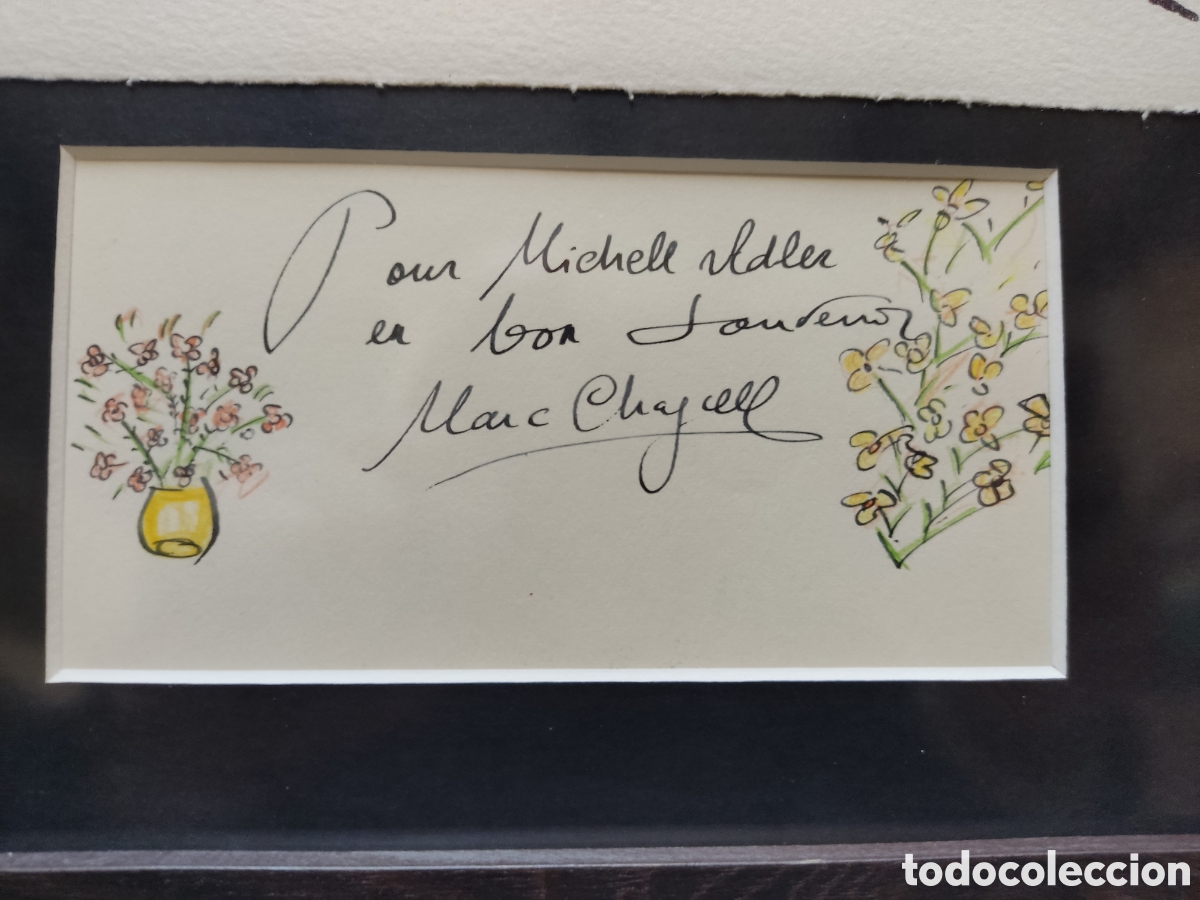 Pour Michell Adler
en bon souvenir
Marc Chagall
todocoleccion